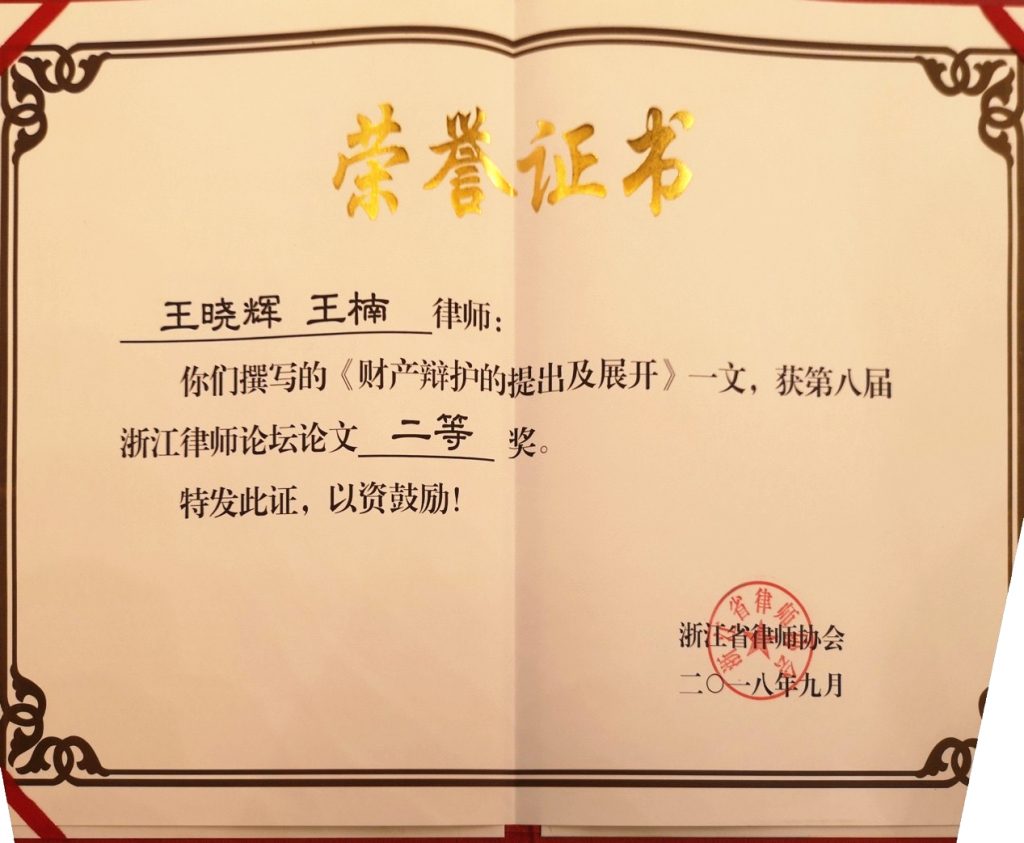 荣誉证书
王晓辉 王楠 律师：
你们撰写的《财产辩护的提出及展开》一文，获第八届
浙江律师论坛论文 二等 奖。
特发此证，以资鼓励！
浙江省律师协会
二〇一八年九月
浙江省律师协会